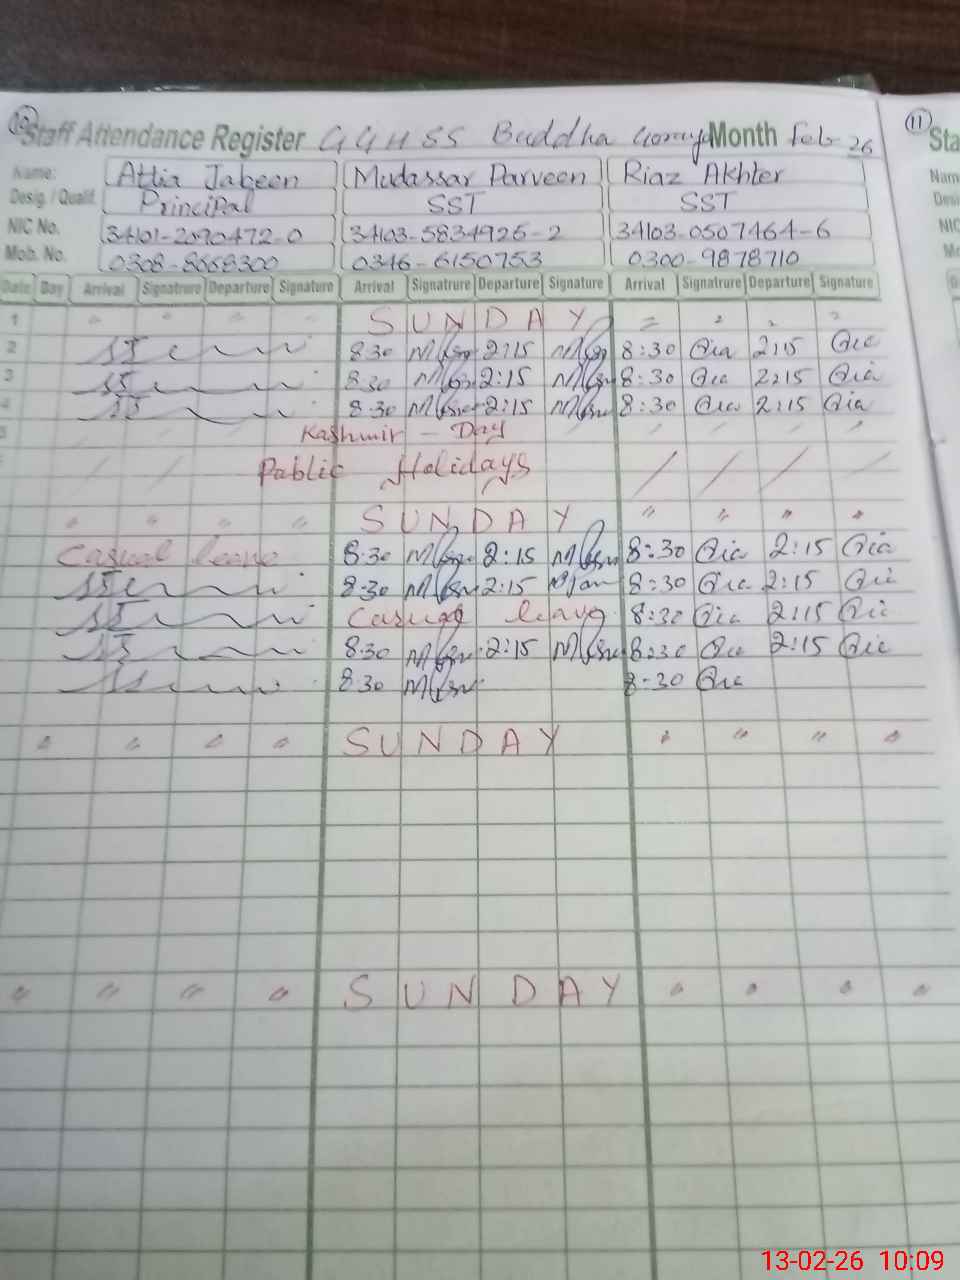 10 Staff Attendance Register GGHSS Buddha Goraya Month Feb 26
11 Sta
Name: Attia Jabeen Mudassar Parveen Riaz Akhter Nam
Desig. / Qualif. Principal SST SST Desi
NIC No. 34101-2090472-0 34103-5834926-2 34103-0507464-6 NIC
Mob. No. 0308-8668300 0346-6150753 0300-9878710 Mo
Date Day Arrival Signatrure Departure Signature Arrival Signatrure Departure Signature Arrival Signatrure Departure Signature
1 " " " " SUNDAY " " " "
2 8:30 2:15 8:30 2:15
3 8:30 2:15 8:30 2:15
4 8:30 2:15 8:30 2:15
5 Kashmir - Day
Public Holidays
" " " " SUNDAY " " " "
Casual leave 8:30 2:15 8:30 2:15
8:30 2:15 8:30 2:15
Casual leave 8:30 2:15
8:30 2:15 8:30 2:15
8:30 8:30
" " " " SUNDAY " " " "
" " " " SUNDAY " " " "
13-02-26 10:09